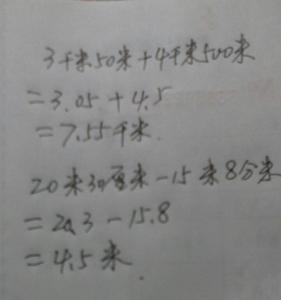 3千米50米+4千米500米
=3.05+4.5
=7.55千米.
20米30厘米-15米8分米
=20.3-15.8
=4.5米.